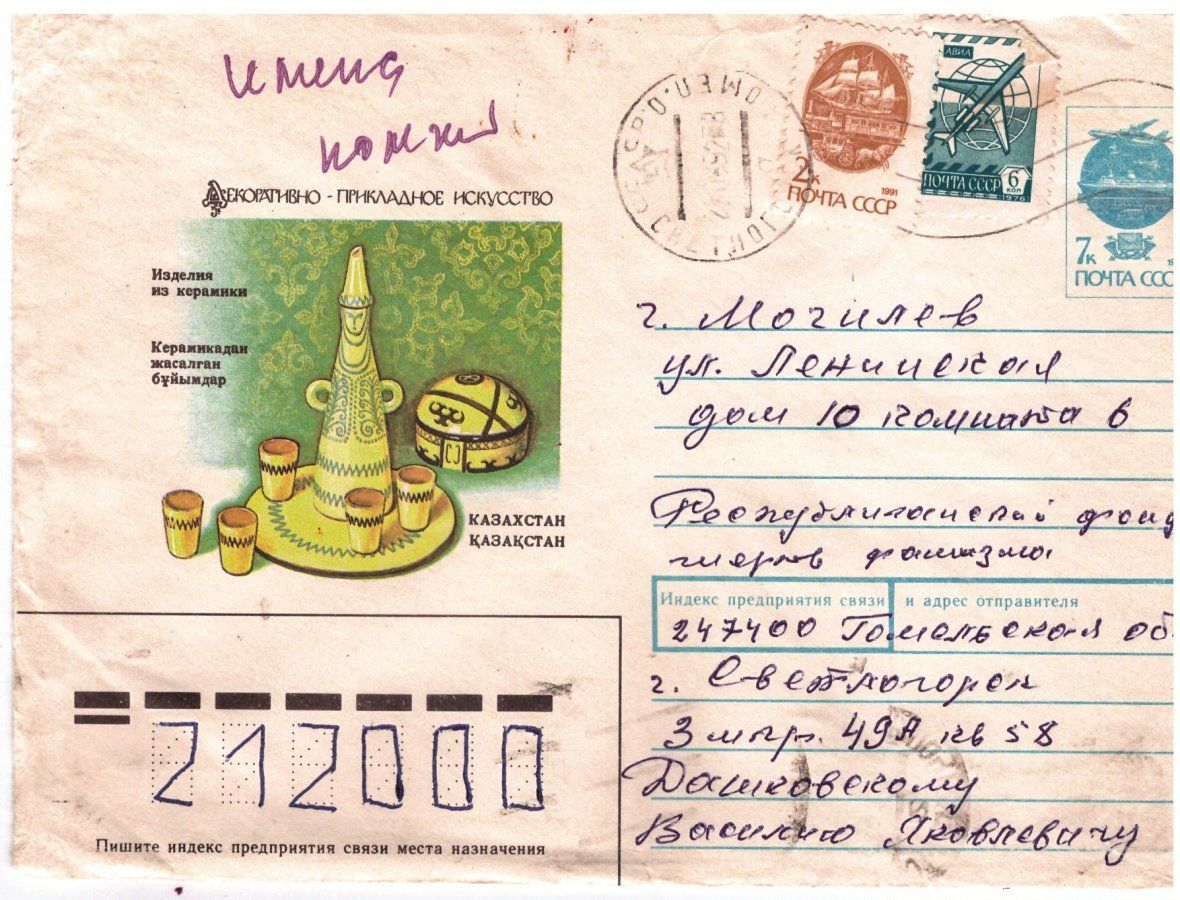 Декоративно - прикладное искусство
Изделия
из керамики
Керамикадан
жасалган
бұйымдар
КАЗАХСТАН
ҚАЗАҚСТАН
2к
1991
ПОЧТА СССР
АВИА
ПОЧТА СССР 6 коп
1976
7к
ПОЧТА ССС
г. Могилев
ул. Ленинская
дом 10 комната 6
Республиканский фонд
жертв фашизма
Индекс предприятия связи и адрес отправителя
247400 Гомельская об
г. Светлогорск
3 мкр. 49А кв 58
Дашковскому
Василию Яковлевичу
212000
Пишите индекс предприятия связи места назначения